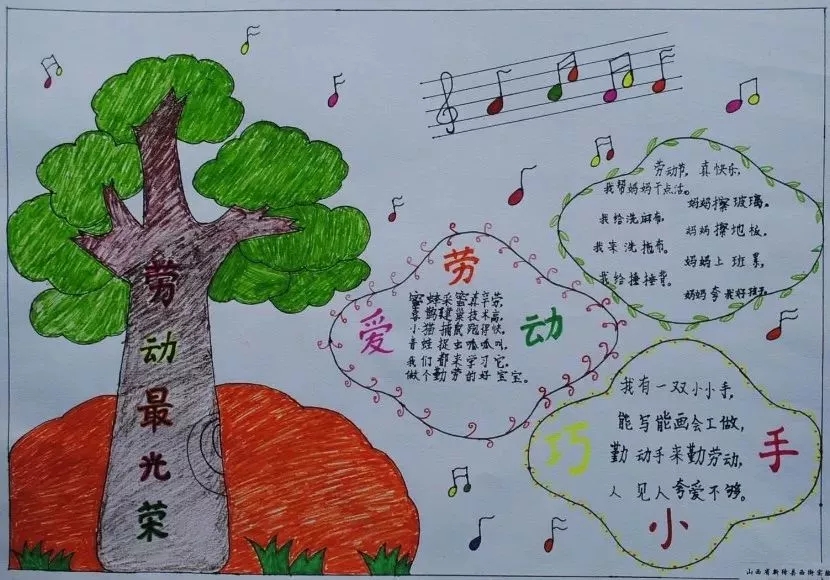 劳动最光荣
爱劳动
蜜蜂采蜜真辛劳,
喜鹊建巢技术高,
小猫捕鼠跑得快,
青蛙捉虫呱呱叫,
我们都来学习它,
做个勤劳的好宝宝。
劳动节,真快乐,
我帮妈妈干点活。
妈妈擦玻璃。
我给洗麻布。
妈妈擦地板,
我来洗拖布。
妈妈上班累,
我给捶捶背。
妈妈夸我好孩子
巧小手
我有一双小小手,
能写能画会工做,
勤动手来勤劳动,
人见人夸爱不够。
山西省新绛县西街实验